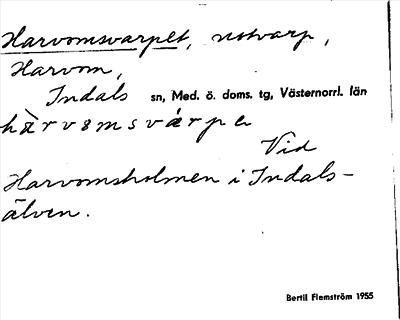 Harvomsvarpet, notvarp,
Harvom,
Indals sn, Med. ö. doms. tg, Västernorrl. län
hàrvɷmsvárpɐ
Vid
Harvomsholmen i Indals-
älven.
Bertil Flemström 1955